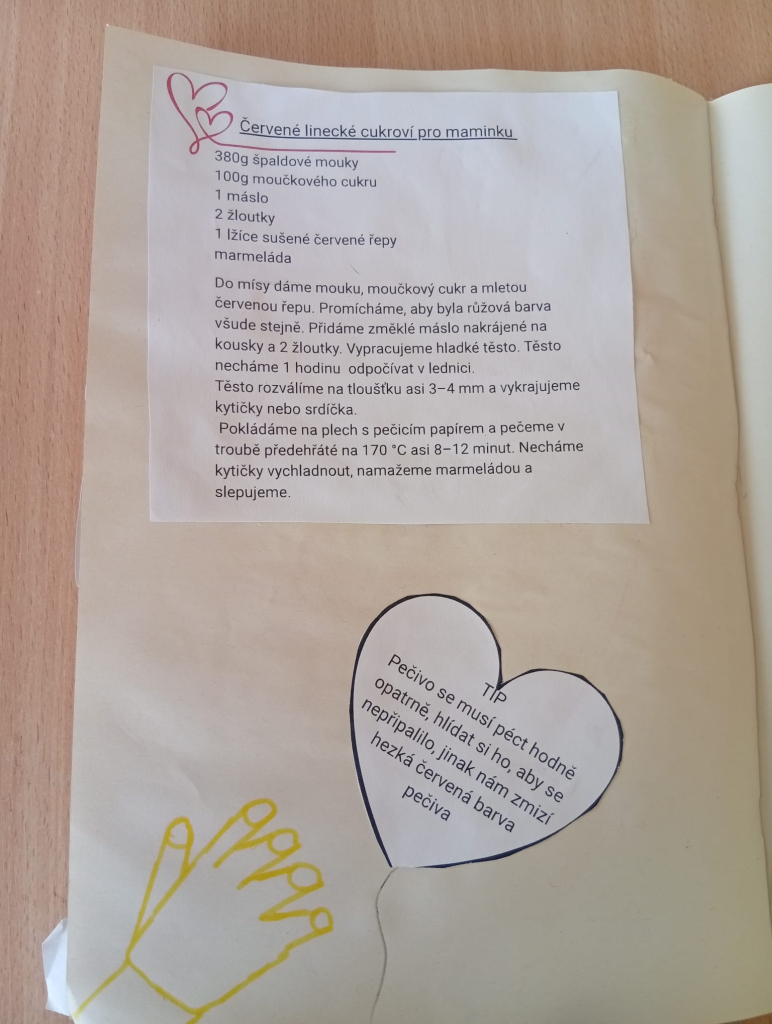 Červené linecké cukroví pro maminku
380g špaldové mouky
100g moučkového cukru
1 máslo
2 žloutky
1 lžíce sušené červené řepy
marmeláda
Do mísy dáme mouku, moučkový cukr a mletou
červenou řepu. Promícháme, aby byla růžová barva
všude stejně. Přidáme změklé máslo nakrájené na
kousky a 2 žloutky. Vypracujeme hladké těsto. Těsto
necháme 1 hodinu odpočívat v lednici.
Těsto rozválíme na tloušťku asi 3–4 mm a vykrajujeme
kytičky nebo srdíčka.
Pokládáme na plech s pečicím papírem a pečeme v
troubě předehřáté na 170 °C asi 8–12 minut. Necháme
kytičky vychladnout, namažeme marmeládou a
slepujeme.
TIP
Pečivo se musí péct hodně
opatrně, hlídat si ho, aby se
nepřipalilo, jinak nám zmizí
hezká červená barva
pečiva